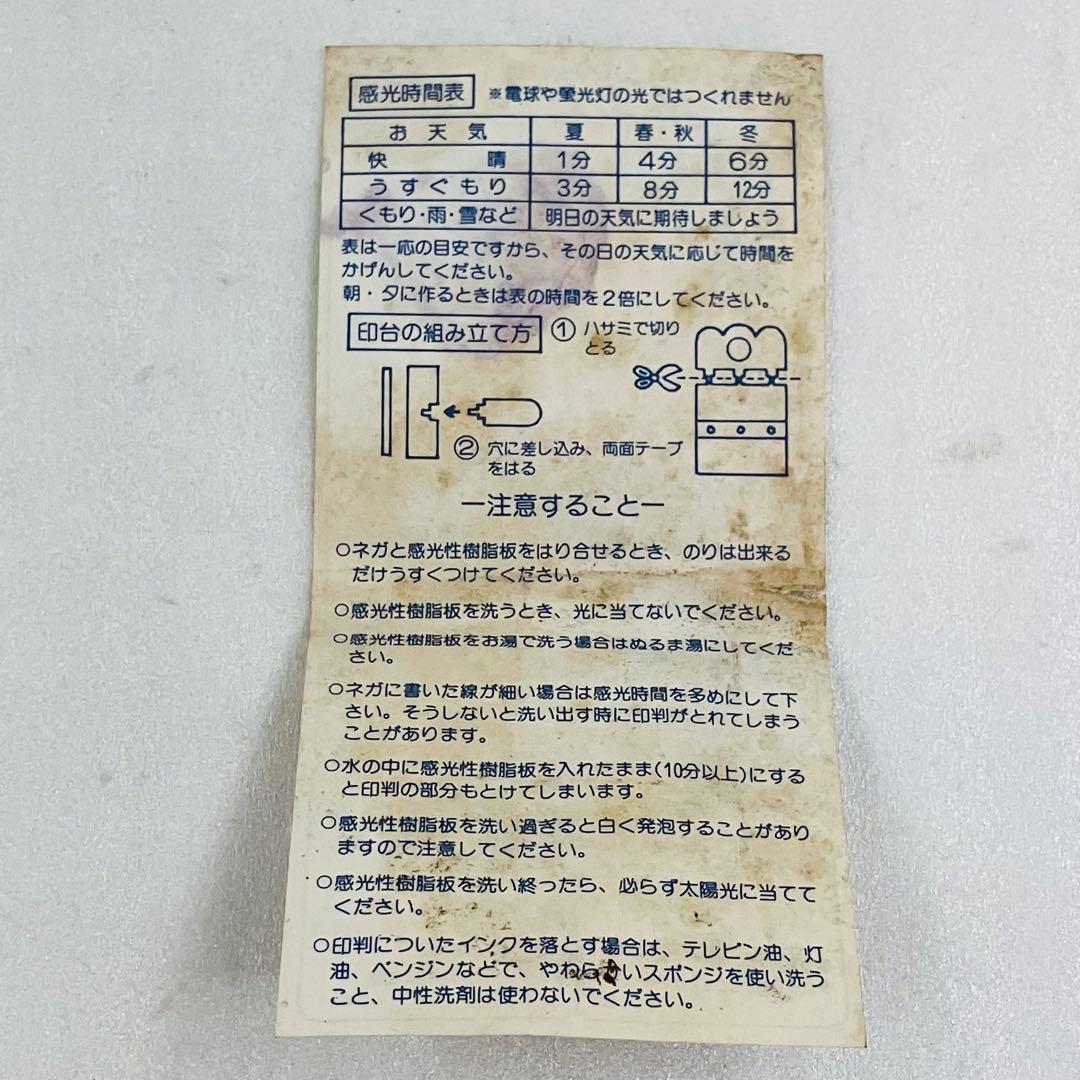 感光時間表 ※電球や螢光灯の光ではつくれません
お天気 夏 春・秋 冬
快晴 1分 4分 6分
うすぐもり 3分 8分 12分
くもり・雨・雪など 明日の天気に期待しましょう
表は一応の目安ですから、その日の天気に応じて時間を
かげんしてください。
朝・夕に作るときは表の時間を2倍にしてください。
印台の組み立て方 ① ハサミで切り
とる
② 穴に差し込み、両面テープ
をはる
ー注意することー
○ネガと感光性樹脂板をはり合せるとき、のりは出来る
だけうすくつけてください。
○感光性樹脂板を洗うとき、光に当てないでください。
○感光性樹脂板をお湯で洗う場合はぬるま湯にしてくだ
さい。
○ネガに書いた線が細い場合は感光時間を多めにして下
さい。そうしないと洗い出す時に印判がとれてしまう
ことがあります。
○水の中に感光性樹脂板を入れたまま(10分以上)にする
と印判の部分もとけてしまいます。
○感光性樹脂板を洗い過ぎると白く発泡することがあり
ますので注意してください。
○感光性樹脂板を洗い終ったら、必らず太陽光に当てて
ください。
○印判についたインクを落とす場合は、テレピン油、灯
油、ベンジンなどで、やわらかいスポンジを使い洗う
こと、中性洗剤は使わないでください。